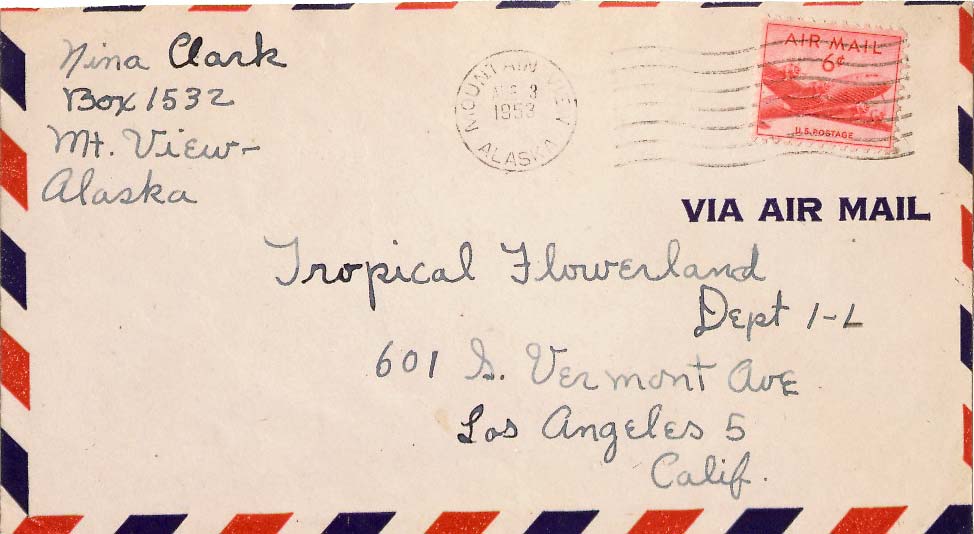 Nina Clark
Box 1532
Mt. View-
Alaska
MOUNTAIN VIEW
AUG 3
1953
ALASKA
AIR MAIL
6¢
U.S. POSTAGE
VIA AIR MAIL
Tropical Flowerland
Dept 1-L
601 S. Vermont Ave
Los Angeles 5
Calif.